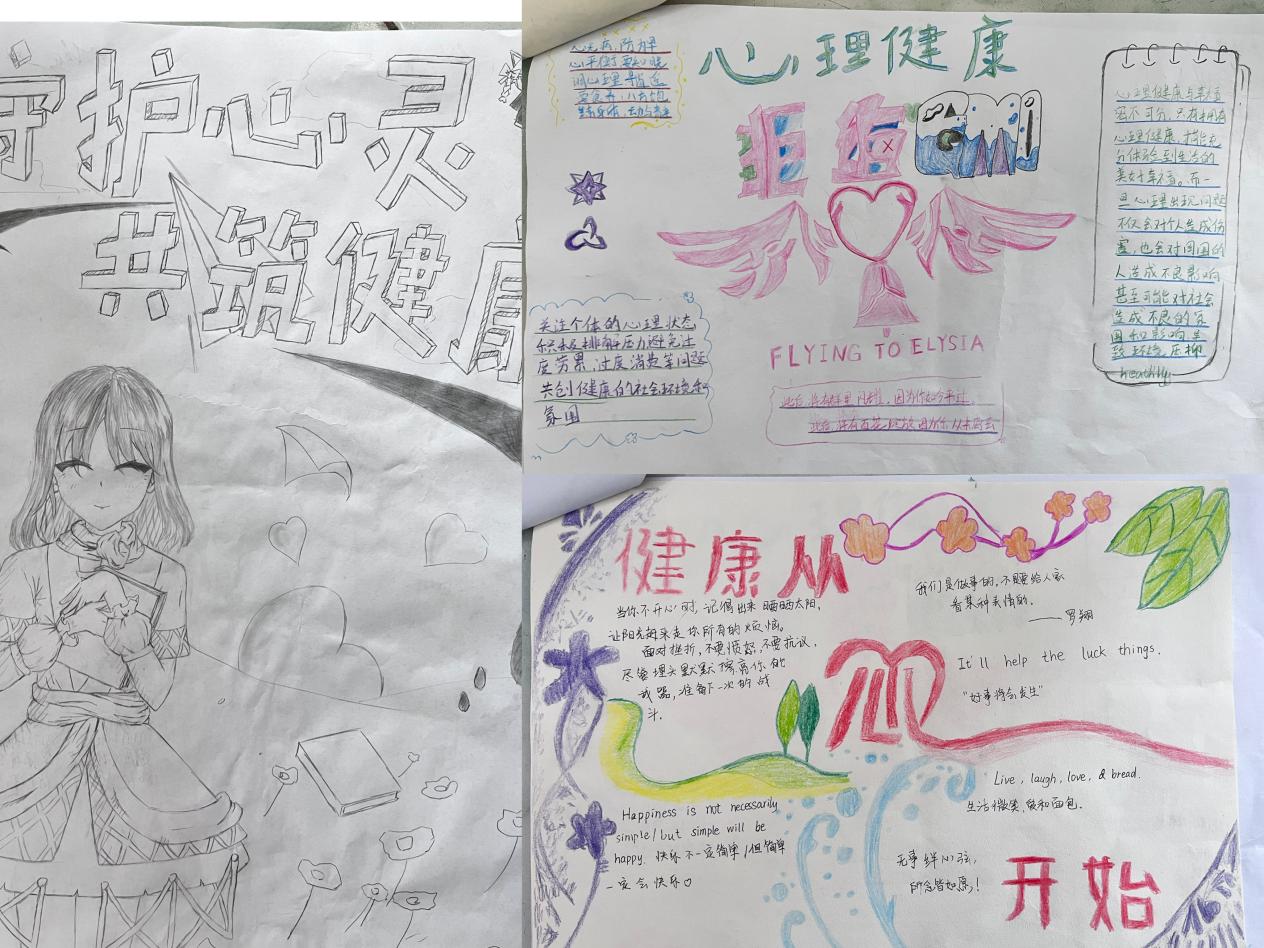 守护心灵
共筑健康
心理健康
FLYING TO ELYSIA
关注个体的心理状态
积极排解压力避免过
度劳累,过度消费等问题
共创健康的社会环境和
氛围
心理健康与幸福
密不可分,只有拥有
心理健康,才能充
分体验到生活的
美好幸福。而一
旦心理出现问题
不仅会对个人造成伤
害,也会对周围的
人造成不良影响
甚至可能对社会
造成不良的氛
围和影响
healthy
健康从
心
开始
当你不开心时,记得出来晒晒太阳,
让阳光带走你所有的烦恼。
面对挫折,不要愤怒,不要抗议,
尽管埋头默默擦亮你的
武器,准备下一次的战
斗.
我们是做事的,不要给人家
看某种表情的.
——罗翔
It'll help the luck things.
"好事将会发生"
Live, laugh, love, & bread.
生活微笑,爱和面包.
Happiness is not necessarily
simple/but simple will be
happy. 快乐不一定简单/但简单
一定会快乐
无事绊心弦,
所念皆如愿!